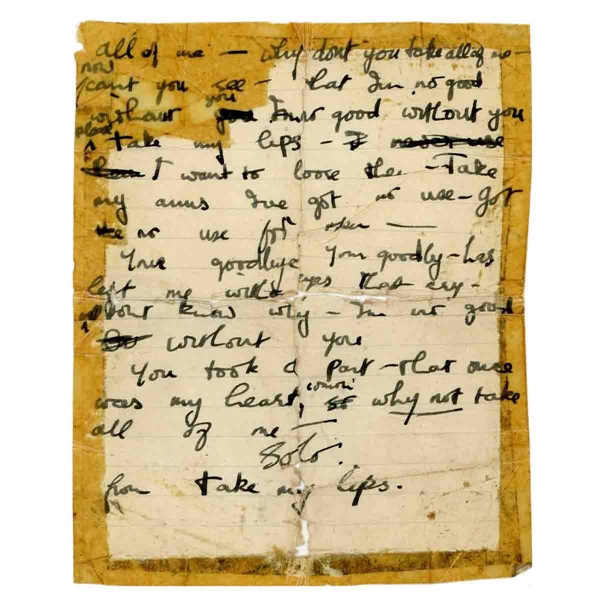 all of me — why dont you take all of me —
now
cant you see — that Im no good
you
without you Im no good without you
please
take my lips - I never use
them I want to loose them - Take
my arms Ive got no use - Got
no use for them —
Your goodbye Your goodby - has
left me with eyes that cry -
dont know why — Im no good
without you
You took a part - that once
was my heart, so why not take
all of me —
Solo.
from take my lips.